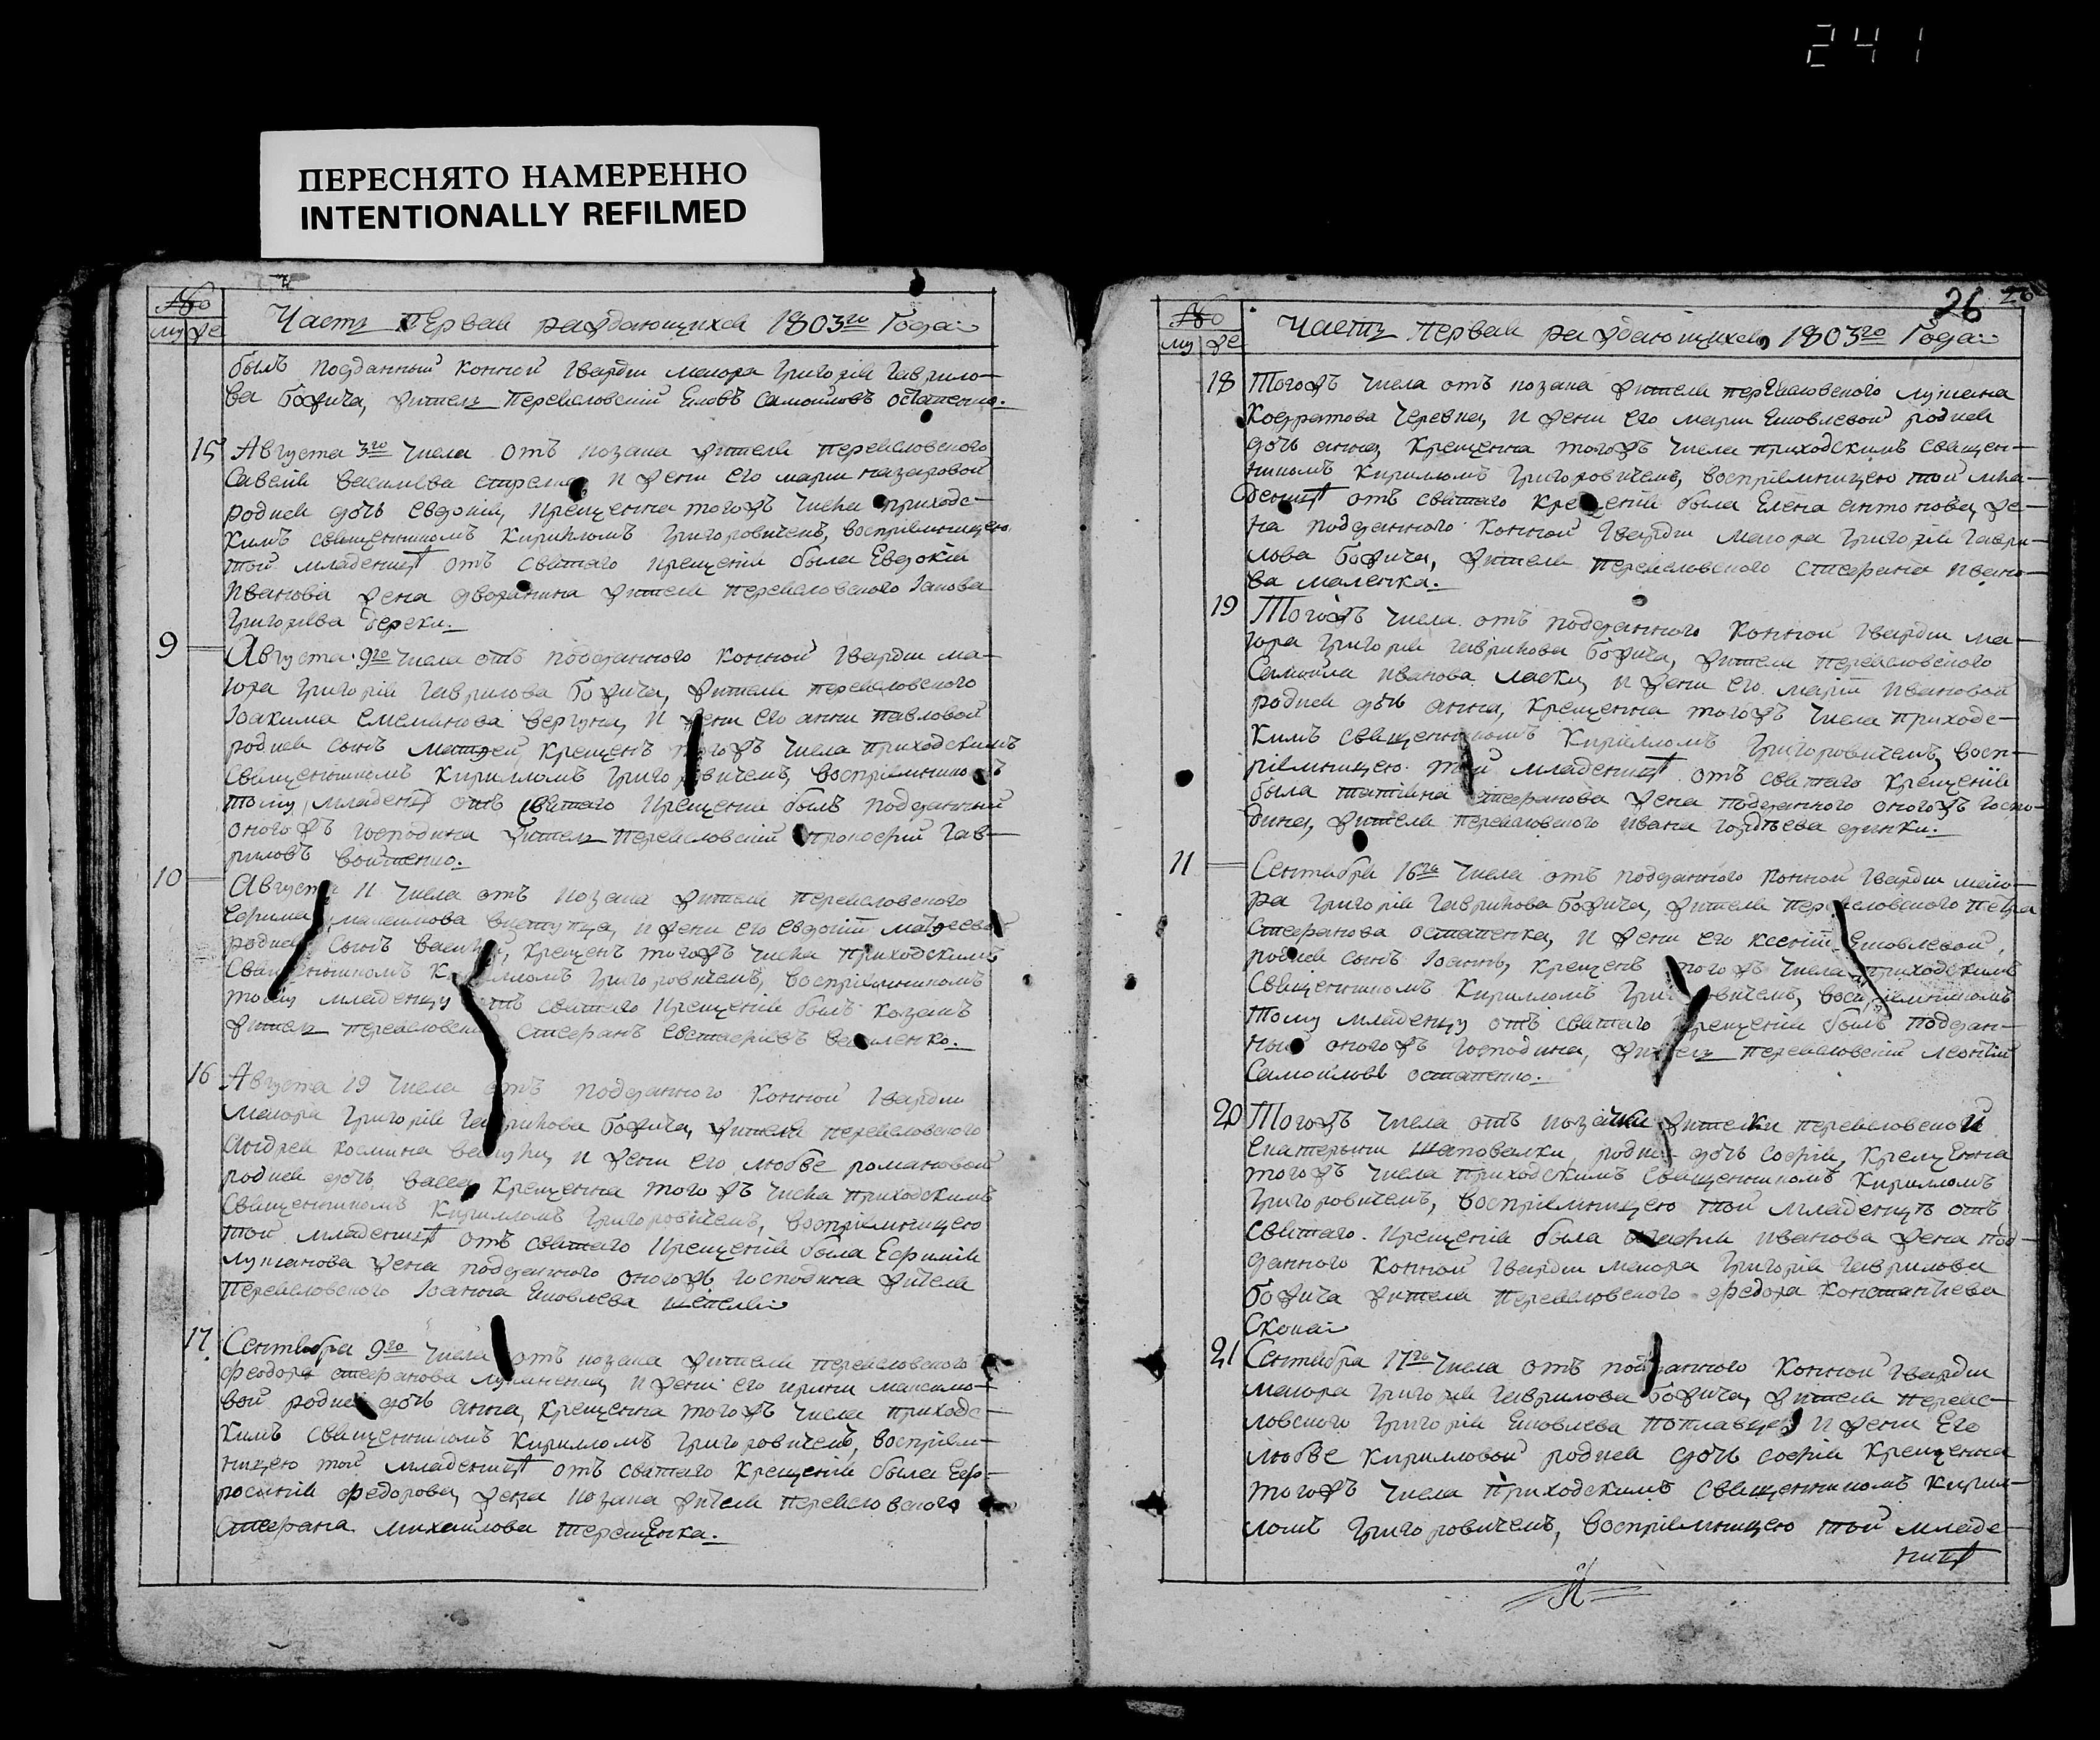 241
ПЕРЕСНЯТО НАМЕРЕННО
INTENTIONALLY REFILMED
№
му же
Часть первая раждающихся 1803го Года
былъ подданный конной гвардіи маіора Григорія Гаврило-
ва Божича, житель переясловскій Яковъ Самойловъ остапенко.
15 Августа 3го числа отъ козака жителя переясловского
Савелія василіева и жени его маріи назаровой
родися дочь евдокія, крещенна тогожъ числа приходс-
кимъ священникомъ Кирилломъ Григоровичемъ, воспріемницею
той младеницѣ отъ святаго крещенія была Евдокія
Иванова жена дворянина жителя переясловского Іакова
Григоріева береки.
9 Августа 9го числа отъ подданного конной гвардіи ма-
іора Григорія Гаврилова божича, жителя переясловского
Іоакима емеліанова вергуна, и жени его анни павловой
родися сынъ матѳей, крещенъ тогожъ числа приходскимъ
священникомъ Кирилломъ Григоровичемъ, воспріемникомъ
тому младенцу отъ святаго крещенія былъ подданный
оногожъ господина житель переясловскій прокофій Гав-
риловъ войтенко.
10 Августа 11 числа отъ козака жителя переясловского
Ефима максимова и жени его евдокіи матѳеевой
родися сынъ василій, крещенъ тогожъ числа приходскимъ
священникомъ Кирилломъ Григоровичемъ, воспріемникомъ
тому младенцу отъ святаго крещенія былъ козакъ
житель переясловскій стефанъ евстафіевъ василенко.
16 Августа 19 числа отъ подданного конной гвардіи
маіора Григорія Гаврилова божича, жителя переясловского
Андрея космина и жени его любве романовой
родися дочь васса, крещенна тогожъ числа приходскимъ
священникомъ Кирилломъ Григоровичемъ, воспріемницею
той младеницѣ отъ святаго крещенія была Ефимія
лукіанова жена подданного оногожъ господина жителя
переясловского Іоанна Яковлева
17 Сентября 9го числа отъ козака жителя переясловского
феодора стефанова и жени его ирини максимо-
вой родися дочь анна, крещенна тогожъ числа приходс-
кимъ священникомъ Кирилломъ Григоровичемъ, воспріем-
ницею той младеницѣ отъ святаго крещенія была Евф-
росинія федорова, жена козака жителя переясловского
Стефана михайлова терещенка.
26
№
му же
Часть первая раждающихся 1803го Года
18 Тогожъ числа отъ козака жителя переясловского лукіана
Кондратова черевка, и жени его маріи Яковлевой родися
дочь анна, крещенна тогожъ числа приходскимъ священ-
никомъ Кирилломъ Григоровичемъ, воспріемницею той мла-
деницѣ отъ святаго крещенія была Елена антонова, же-
на подданного конной гвардіи маіора Григорія Гаври-
лова божича, жителя переясловского стефана ивано-
ва маленка.
19 Тогожъ числа отъ подданного конной гвардіи ма-
іора Григорія Гаврилова божича, жителя переясловского
Самоила иванова ласки, и жени его маріи ивановой
родися дочь анна, крещенна тогожъ числа приходс-
кимъ священникомъ Кирилломъ Григоровичемъ, восп-
ріемницею той младеницѣ отъ святаго крещенія
была татіяна стефанова жена подданного оногожъ госпо-
дина, жителя переясловского ивана гордѣева динки.
11 Сентября 16го числа отъ подданного конной гвардіи маіо-
ра Григорія Гаврилова божича, жителя переясловского петра
Стефанова остапенка, и жени его ксеніи Яковлевой,
родися сынъ Іоаннъ, крещенъ тогожъ числа приходскимъ
священникомъ Кирилломъ Григоровичемъ, воспріемникомъ
тому младенцу отъ святаго крещенія былъ поддан-
ный оногожъ господина, житель переясловскій леонтій
Самойловъ остапенко.
20 Тогожъ числа отъ козачки жителки переясловской
Екатерыни Шаповалки, родися дочь софія, крещенна
тогожъ числа приходскимъ священникомъ Кирилломъ
Григоровичемъ, воспріемницею той младеницѣ отъ
святаго крещенія была агафія иванова жена под-
данного конной гвардіи маіора Григорія Гаврилова
божича жителя переясловского федора константіева
Скопа
21 Сентября 17го числа отъ подданного конной гвардіи
маіора Григорія Гаврилова божича, жителя переяс-
ловского Григорія Яковлева поплавца, и жени его
любве Кирилловой родися дочь софія крещенна
тогожъ числа приходскимъ священникомъ Кирил-
ломъ Григоровичемъ, воспріемницею той младе-
ницѣ